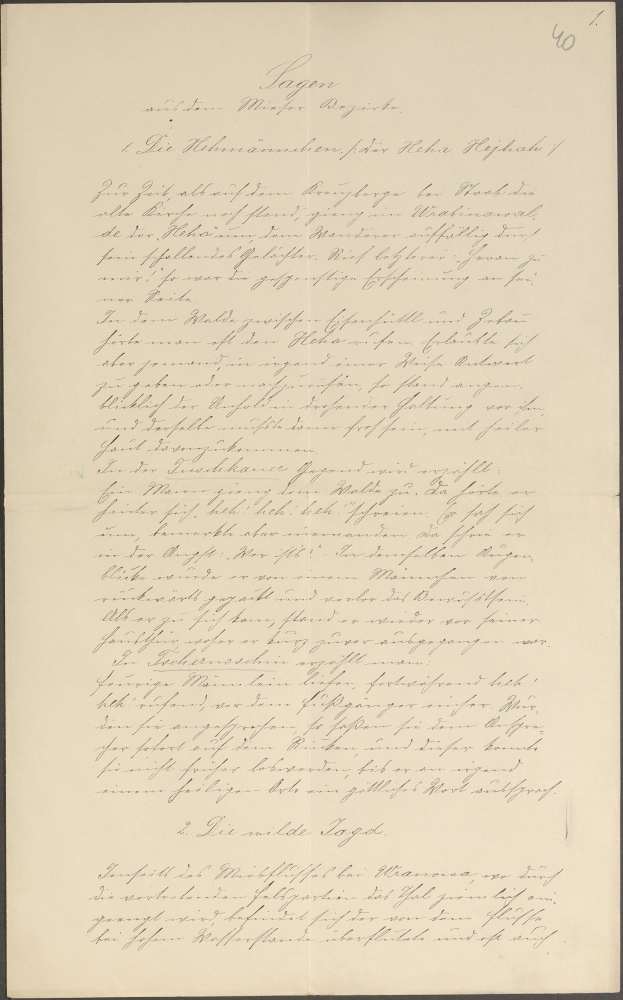 1.
40
Sagen
aus dem Mieser Bezirke.
1. Die Hehmännchen. /: der Hehe Hejkal :/
Zur Zeit, als auf dem Kreuzberge bei Staab die
alte Kirche noch stand, gieng im Wrabinawal-
de der „Hehe" um, dem Wanderer auffällig durch
sein schallendes Gelächter. Rief letzterer: „Heran zu
mir!" so war die gespenstige Erscheinung an sei-
ner Seite.
In dem Walde zwischen Eisenhüttl und
hörte man oft den Hehe rufen. Erlaubte sich
aber jemand, in irgend einer Weise Antwort
zu geben oder nachzurufen, so stand augen-
blicklich der Unhold in drohender Haltung vor ihm,
und derselbe mußte dann froh sein, mit heiler
Haut davonzukommen.
In der Gegend wird erzählt:
Ein Mann gieng dem Walde zu. Da hörte er
hinter sich „heh! heh! heh!" schreien. Er sah sich
um, bemerkte aber niemanden. Da schrie er
in der Angst: „Wer ists?" In demselben Augen-
blicke wurde er von einem Männchen von
rückwärts gepackt und verlor das Bewußtsein.
Als er zu sich kam, stand er wieder vor seiner
Hausthür, woher er kurz zuvor ausgegangen war.
In Tschernoschin erzählt man:
Feurige Männlein liefen, fortwährend heh!
heh! rufend, vor dem Fußgänger einher. Wur-
den sie angesprochen, so saßen sie dem Anspre-
cher sofort auf dem Rücken, und dieser konnte
sie nicht früher loswerden, bis er an irgend
einem heiligen Orte ein göttliches Wort aussprach.
2. Die wilde Jagd.
Jenseits des Miesflusses bei Wranowa, wo durch
die vortretenden Felspartien das Thal ziemlich ein-
geengt wird, befindet sich der von dem Flusse
bei hohem Wasserstande überflutete und oft auch